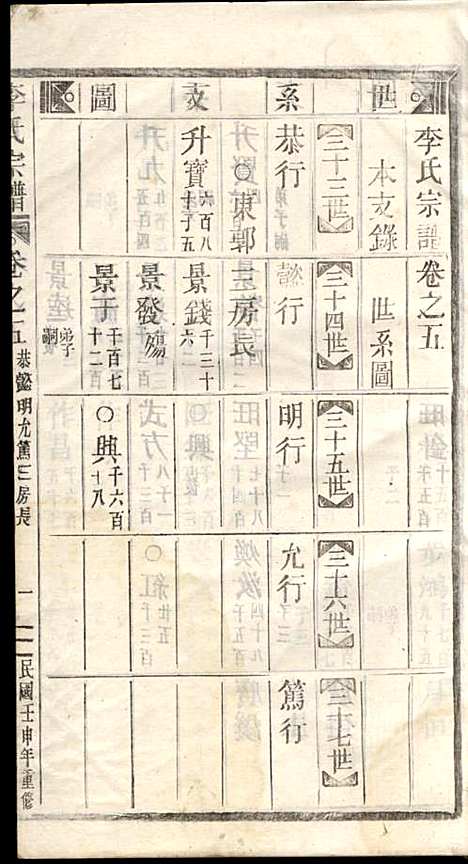 李氏宗譜 卷之五
本支錄 世系圖
世系支圖
三十三世 三十四世 三十五世 三十六世 三十七世
恭行 懿行 明行 允行 篤行
○東郭 二房長
升寶 六百八十子五 景錢 千三十六二
景發 殤
景于 千百七十二百 ○興 千六百十八
弟子嗣
李氏宗譜 卷之五 恭懿明允篤三房長 一 民國壬申年重修